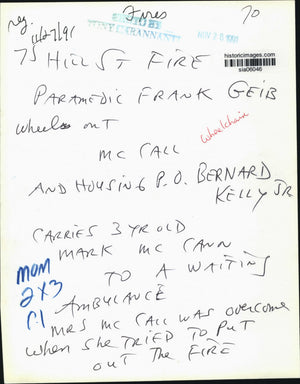 neg. Fires 70
11/27/91
PHOTO BY
TONY CARANNANTE
NOV 28 1991
historicimages.com
sia06046
75 HILL ST FIRE
PARAMEDIC FRANK GEIB
wheels out
wheelchair
MC CALL
AND HOUSING P.O. BERNARD
KELLY JR
CARRIES 3 YR OLD
MARK MC CANN
TO A WAITING
AMBULANCE
MOM
2x3
C1
MRS MC CALL WAS OVERCOME
when she TRIED TO PUT
OUT THE FIRE